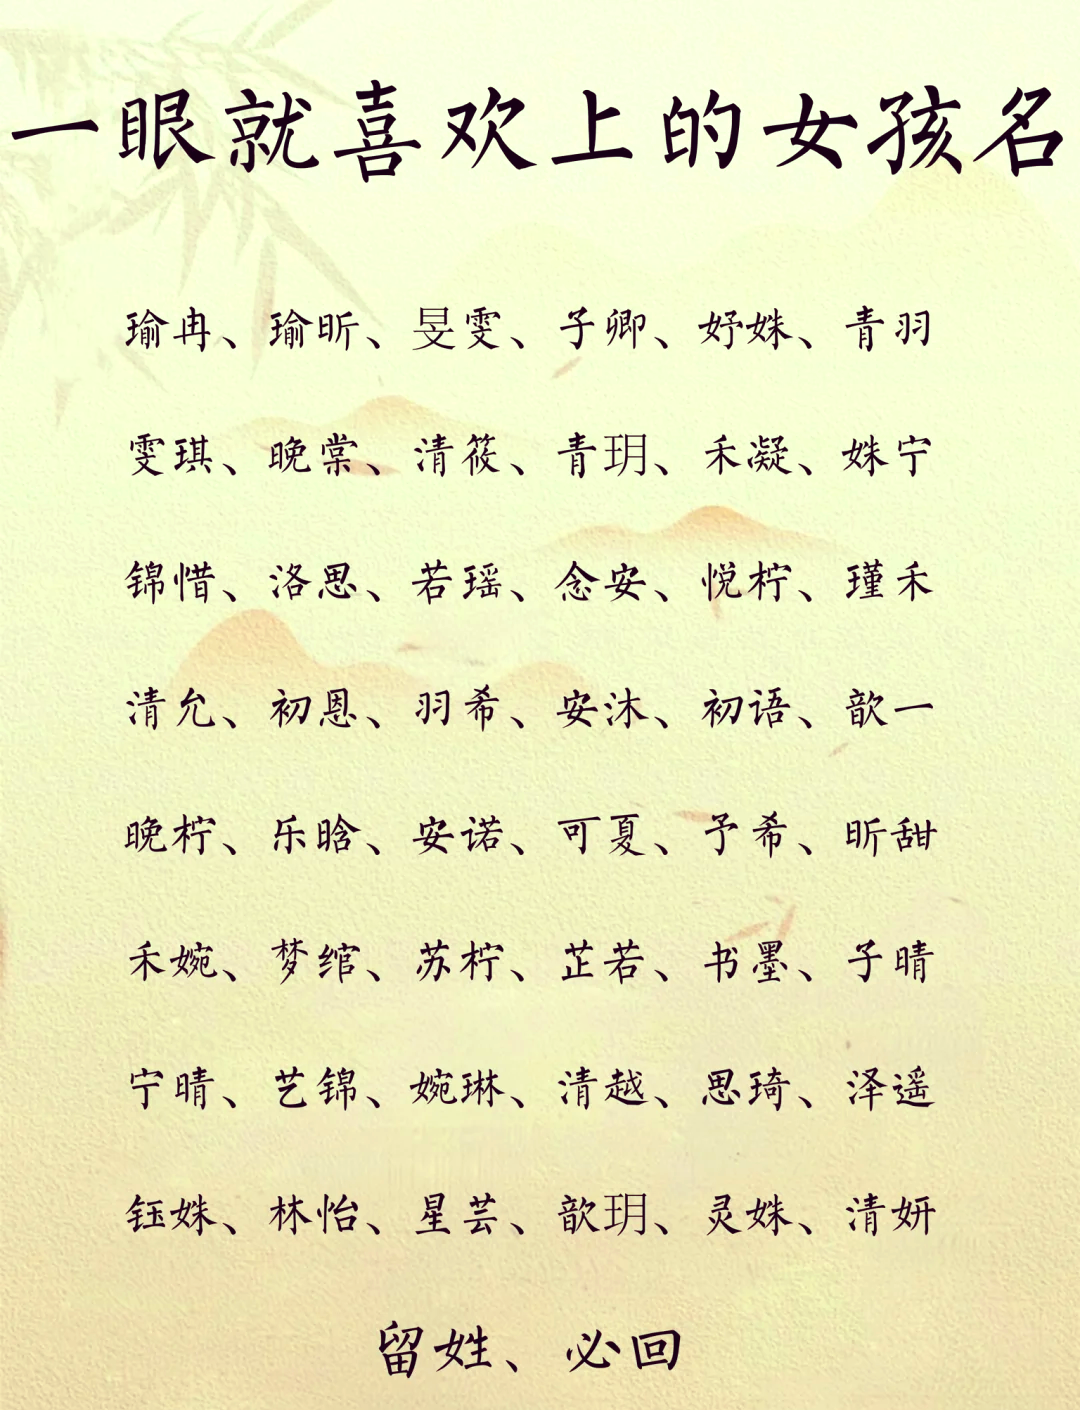 一眼就喜欢上的女孩名
瑜冉、瑜昕、旻雯、子卿、妤姝、青羽
雯琪、晚棠、清筱、青玥、禾凝、姝宁
锦惜、洛思、若瑶、念安、悦柠、瑾禾
清允、初恩、羽希、安沐、初语、歆一
晚柠、乐晗、安诺、可夏、予希、昕甜
禾婉、梦绾、苏柠、芷若、书墨、子晴
宁晴、艺锦、婉琳、清越、思琦、泽遥
钰姝、林怡、星芸、歆玥、灵姝、清妍
留姓、必回